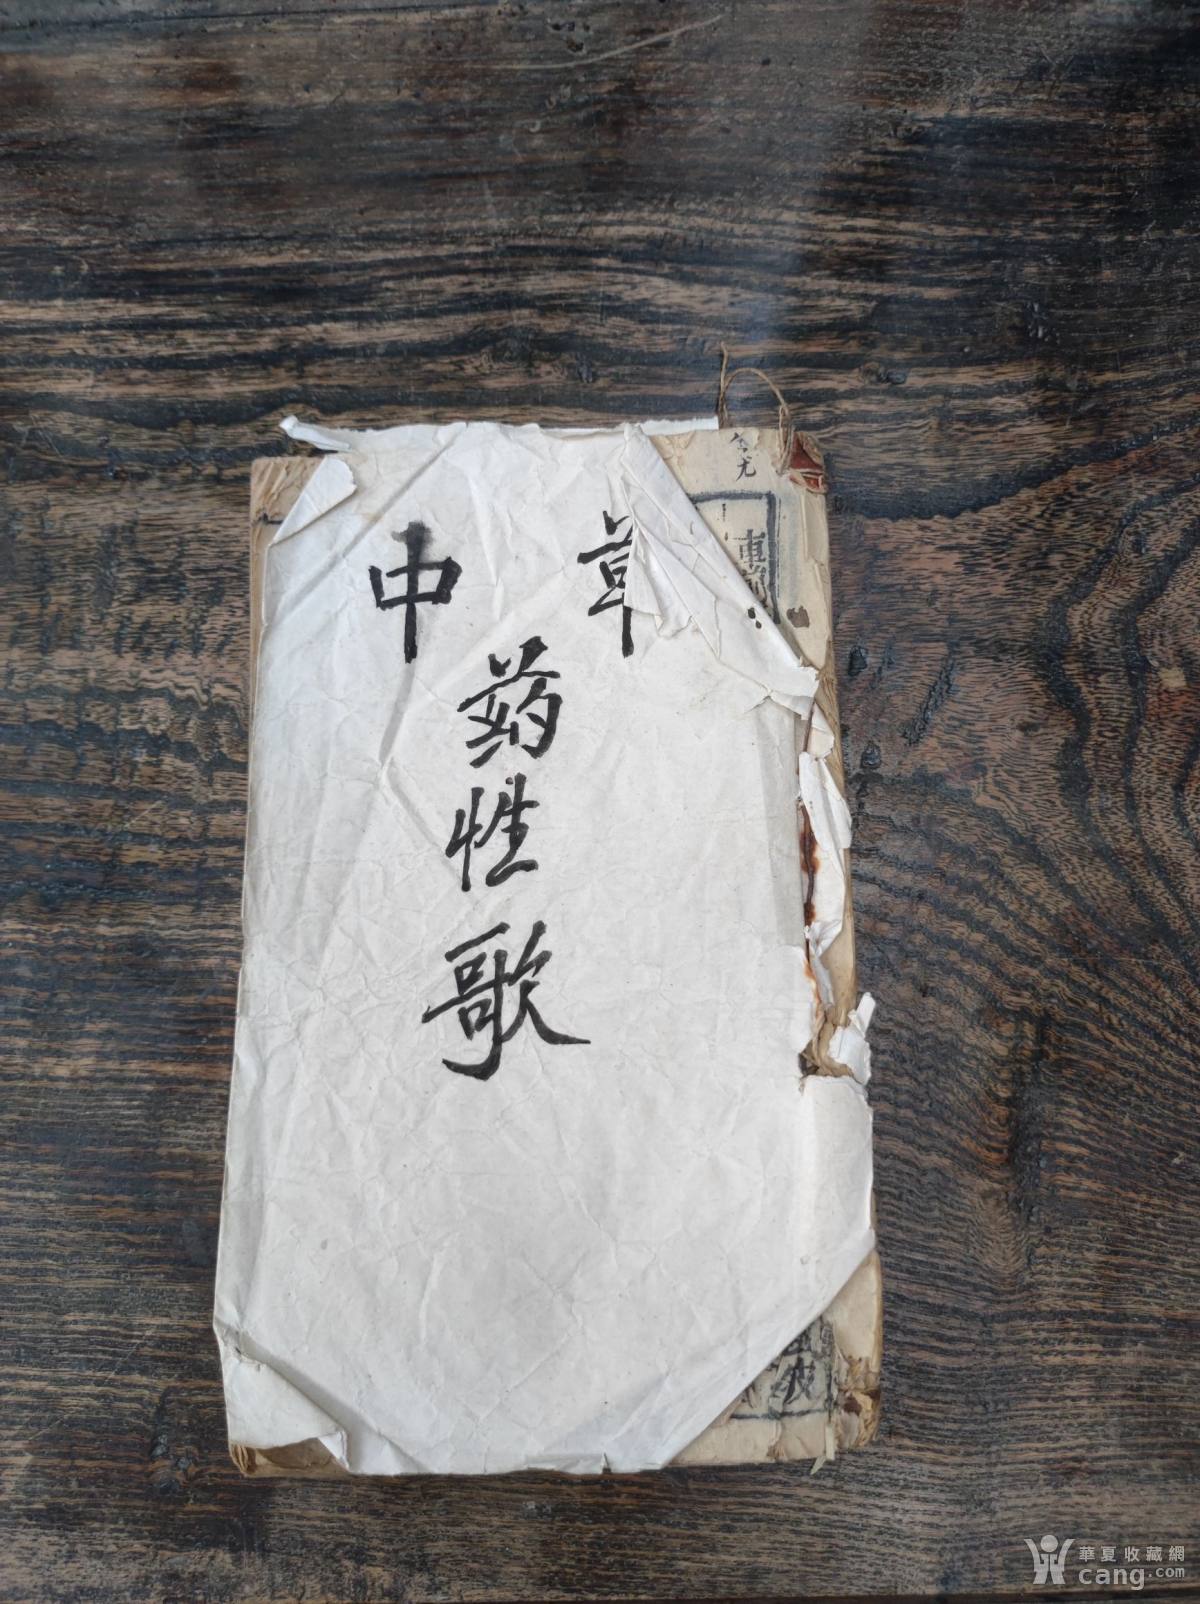 中 草
药
性
歌
華夏收藏網
cang.com